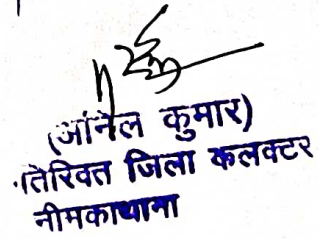 (अनिल कुमार)
अतिरिक्त जिला कलक्टर
नीमकाथाना